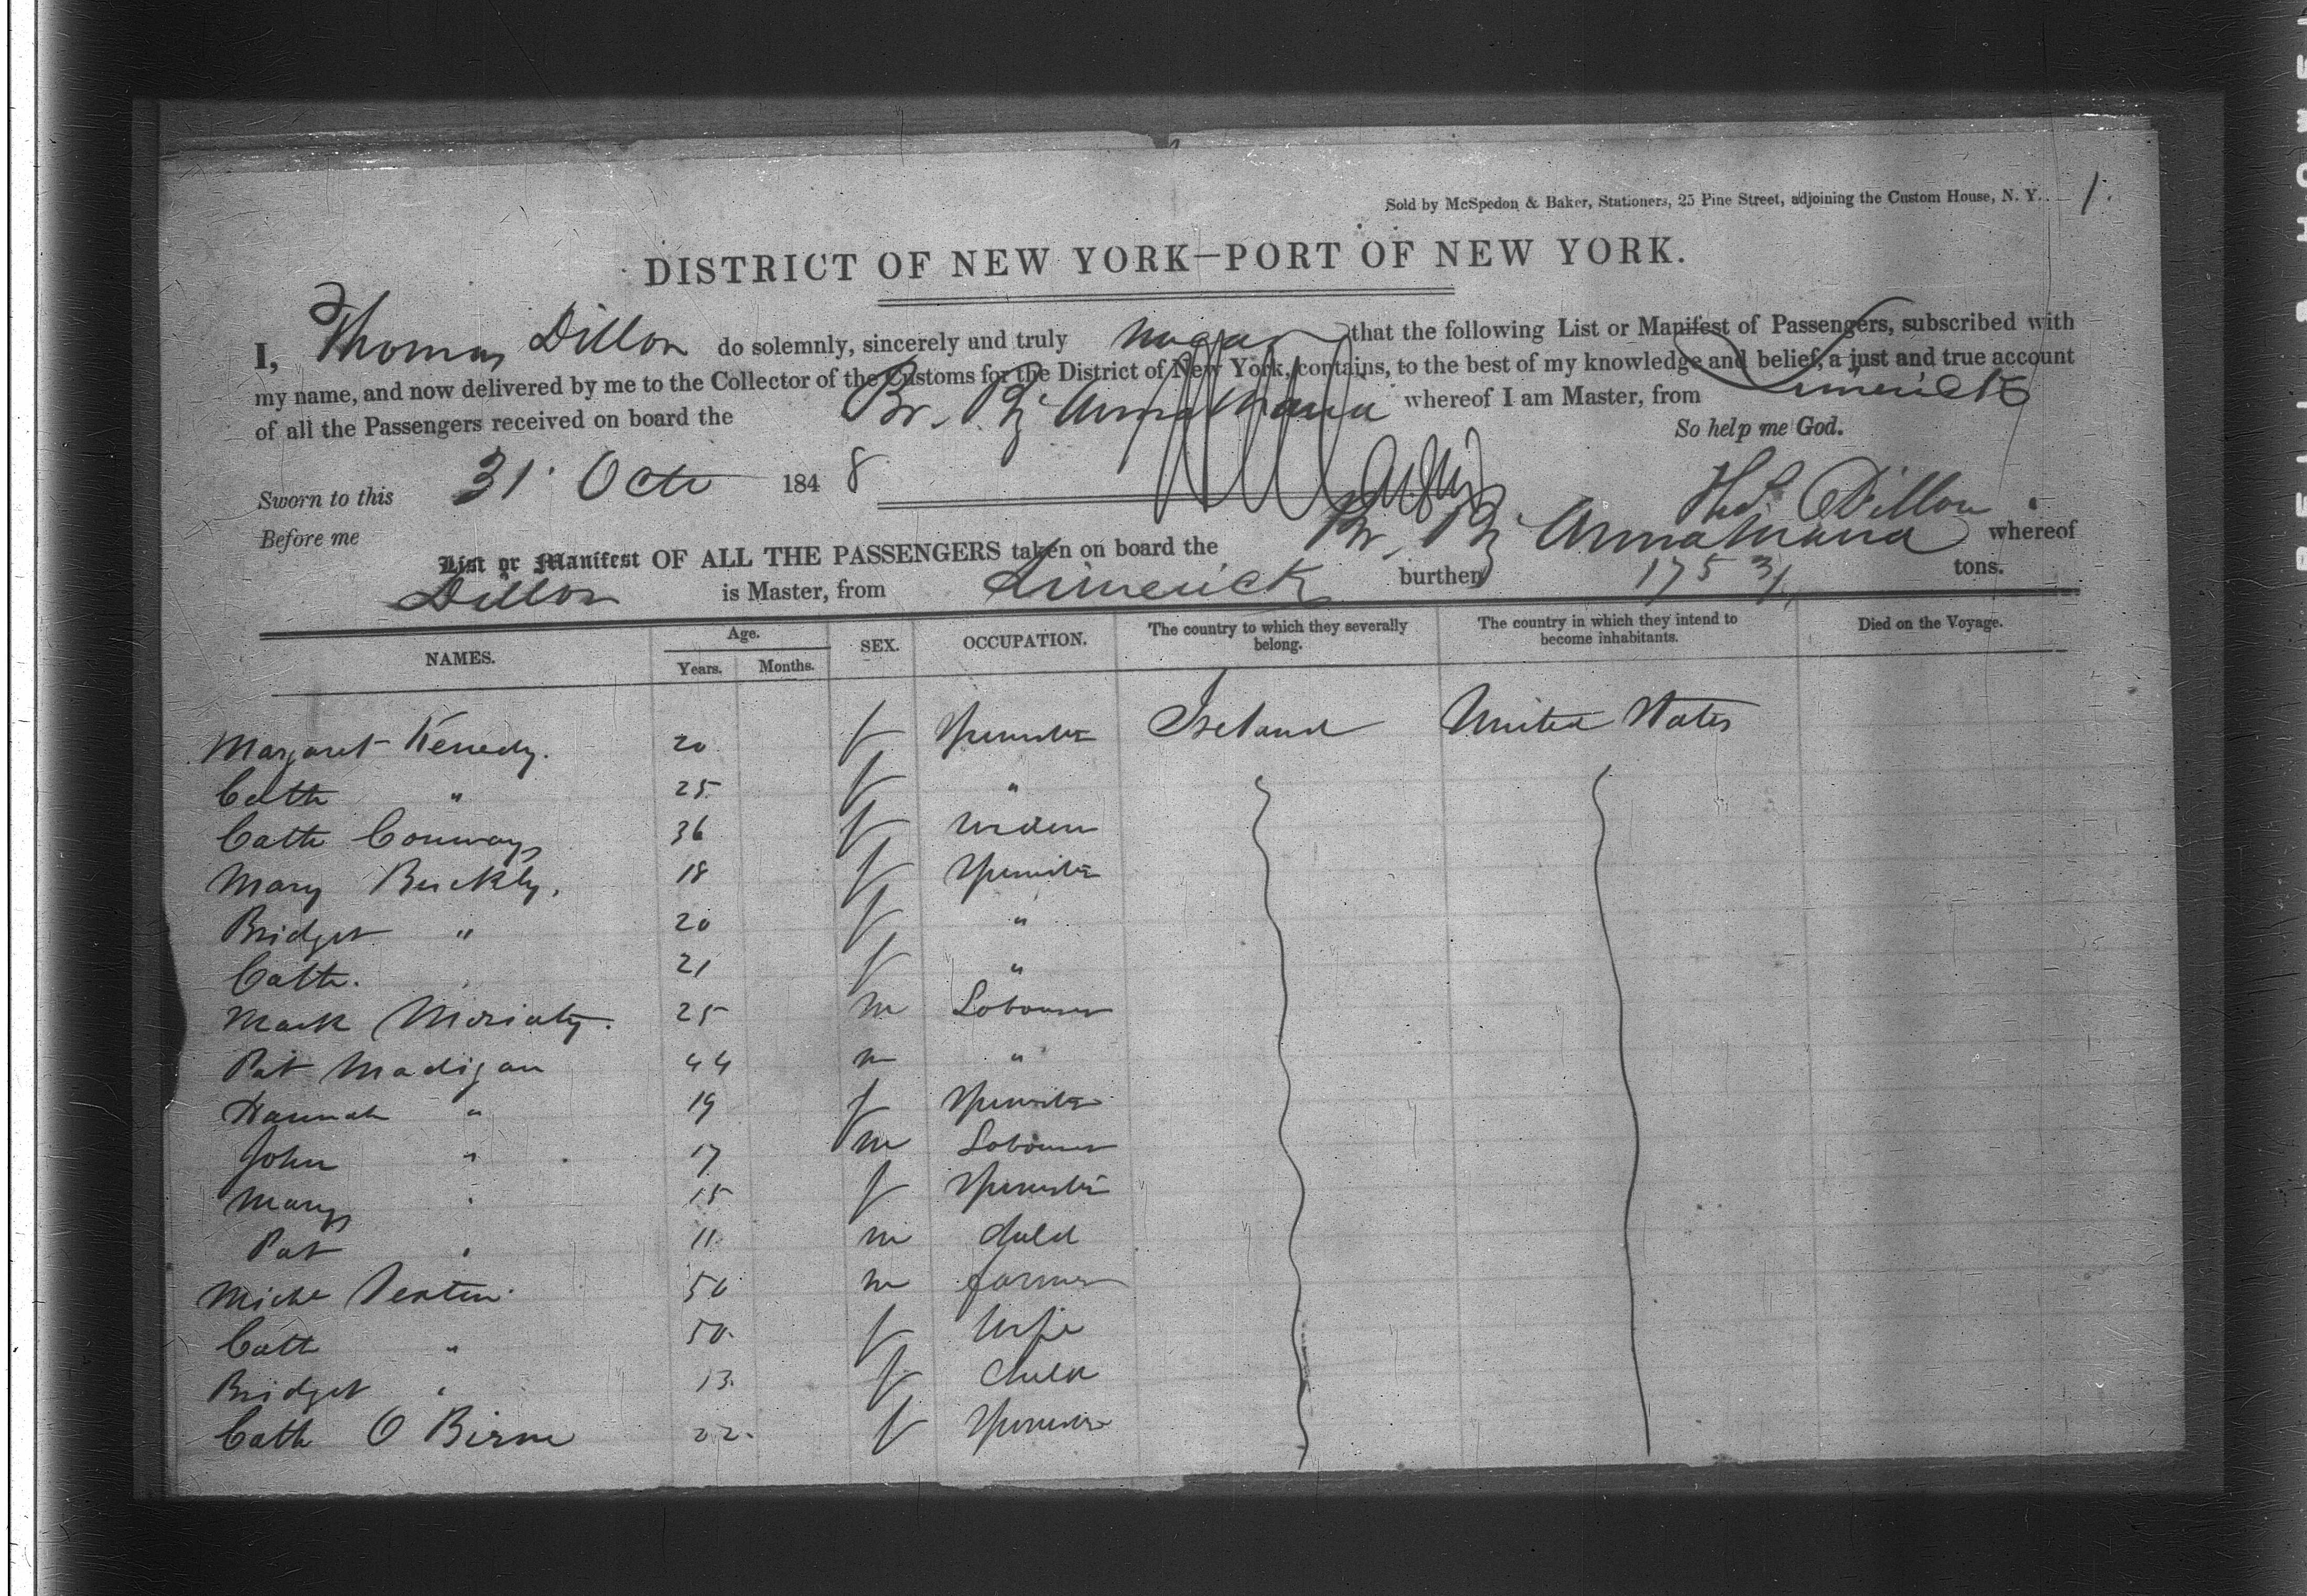 Sold by McSpedon & Baker, Stationers, 25 Pine Street, adjoining the Custom House, N. Y. 1.
DISTRICT OF NEW YORK—PORT OF NEW YORK.
I, Thomas Dillon do solemnly, sincerely and truly that the following List or Manifest of Passengers, subscribed with
my name, and now delivered by me to the Collector of the Customs for the District of New York, contains, to the best of my knowledge and belief, a just and true account
of all the Passengers received on board the Br. Bg Annamaria whereof I am Master, from Limerick
So help me God.
Sworn to this 31 Octr 1848
Thos. Dillon
Before me
List or Manifest OF ALL THE PASSENGERS taken on board the Br. Bg Annamaria whereof
Dillon is Master, from Limerick burthen 175 tons.
NAMES. Age. SEX. OCCUPATION. The country to which they severally belong. The country in which they intend to become inhabitants. Died on the Voyage.
Years. Months.
Margaret Kenedy. 20 f Spinster Ireland United States
Cath " 25 f "
Cath Conway 36 f Widow
Mary Buckly. 18 f Spinster
Bridget " 20 f "
Cath. 21 f "
Mark Moriaty. 25 m Labourer
Pat Madigan 44 m "
Hannah " 19 f Spinster
John " 17 m Labourer
Mary " 15 f Spinster
Pat " 11 m Child
Miche 50 m farmer
Cath " 50 f Wife
Bridget " 13 f Child
Cath O Birne 22 f Spinster